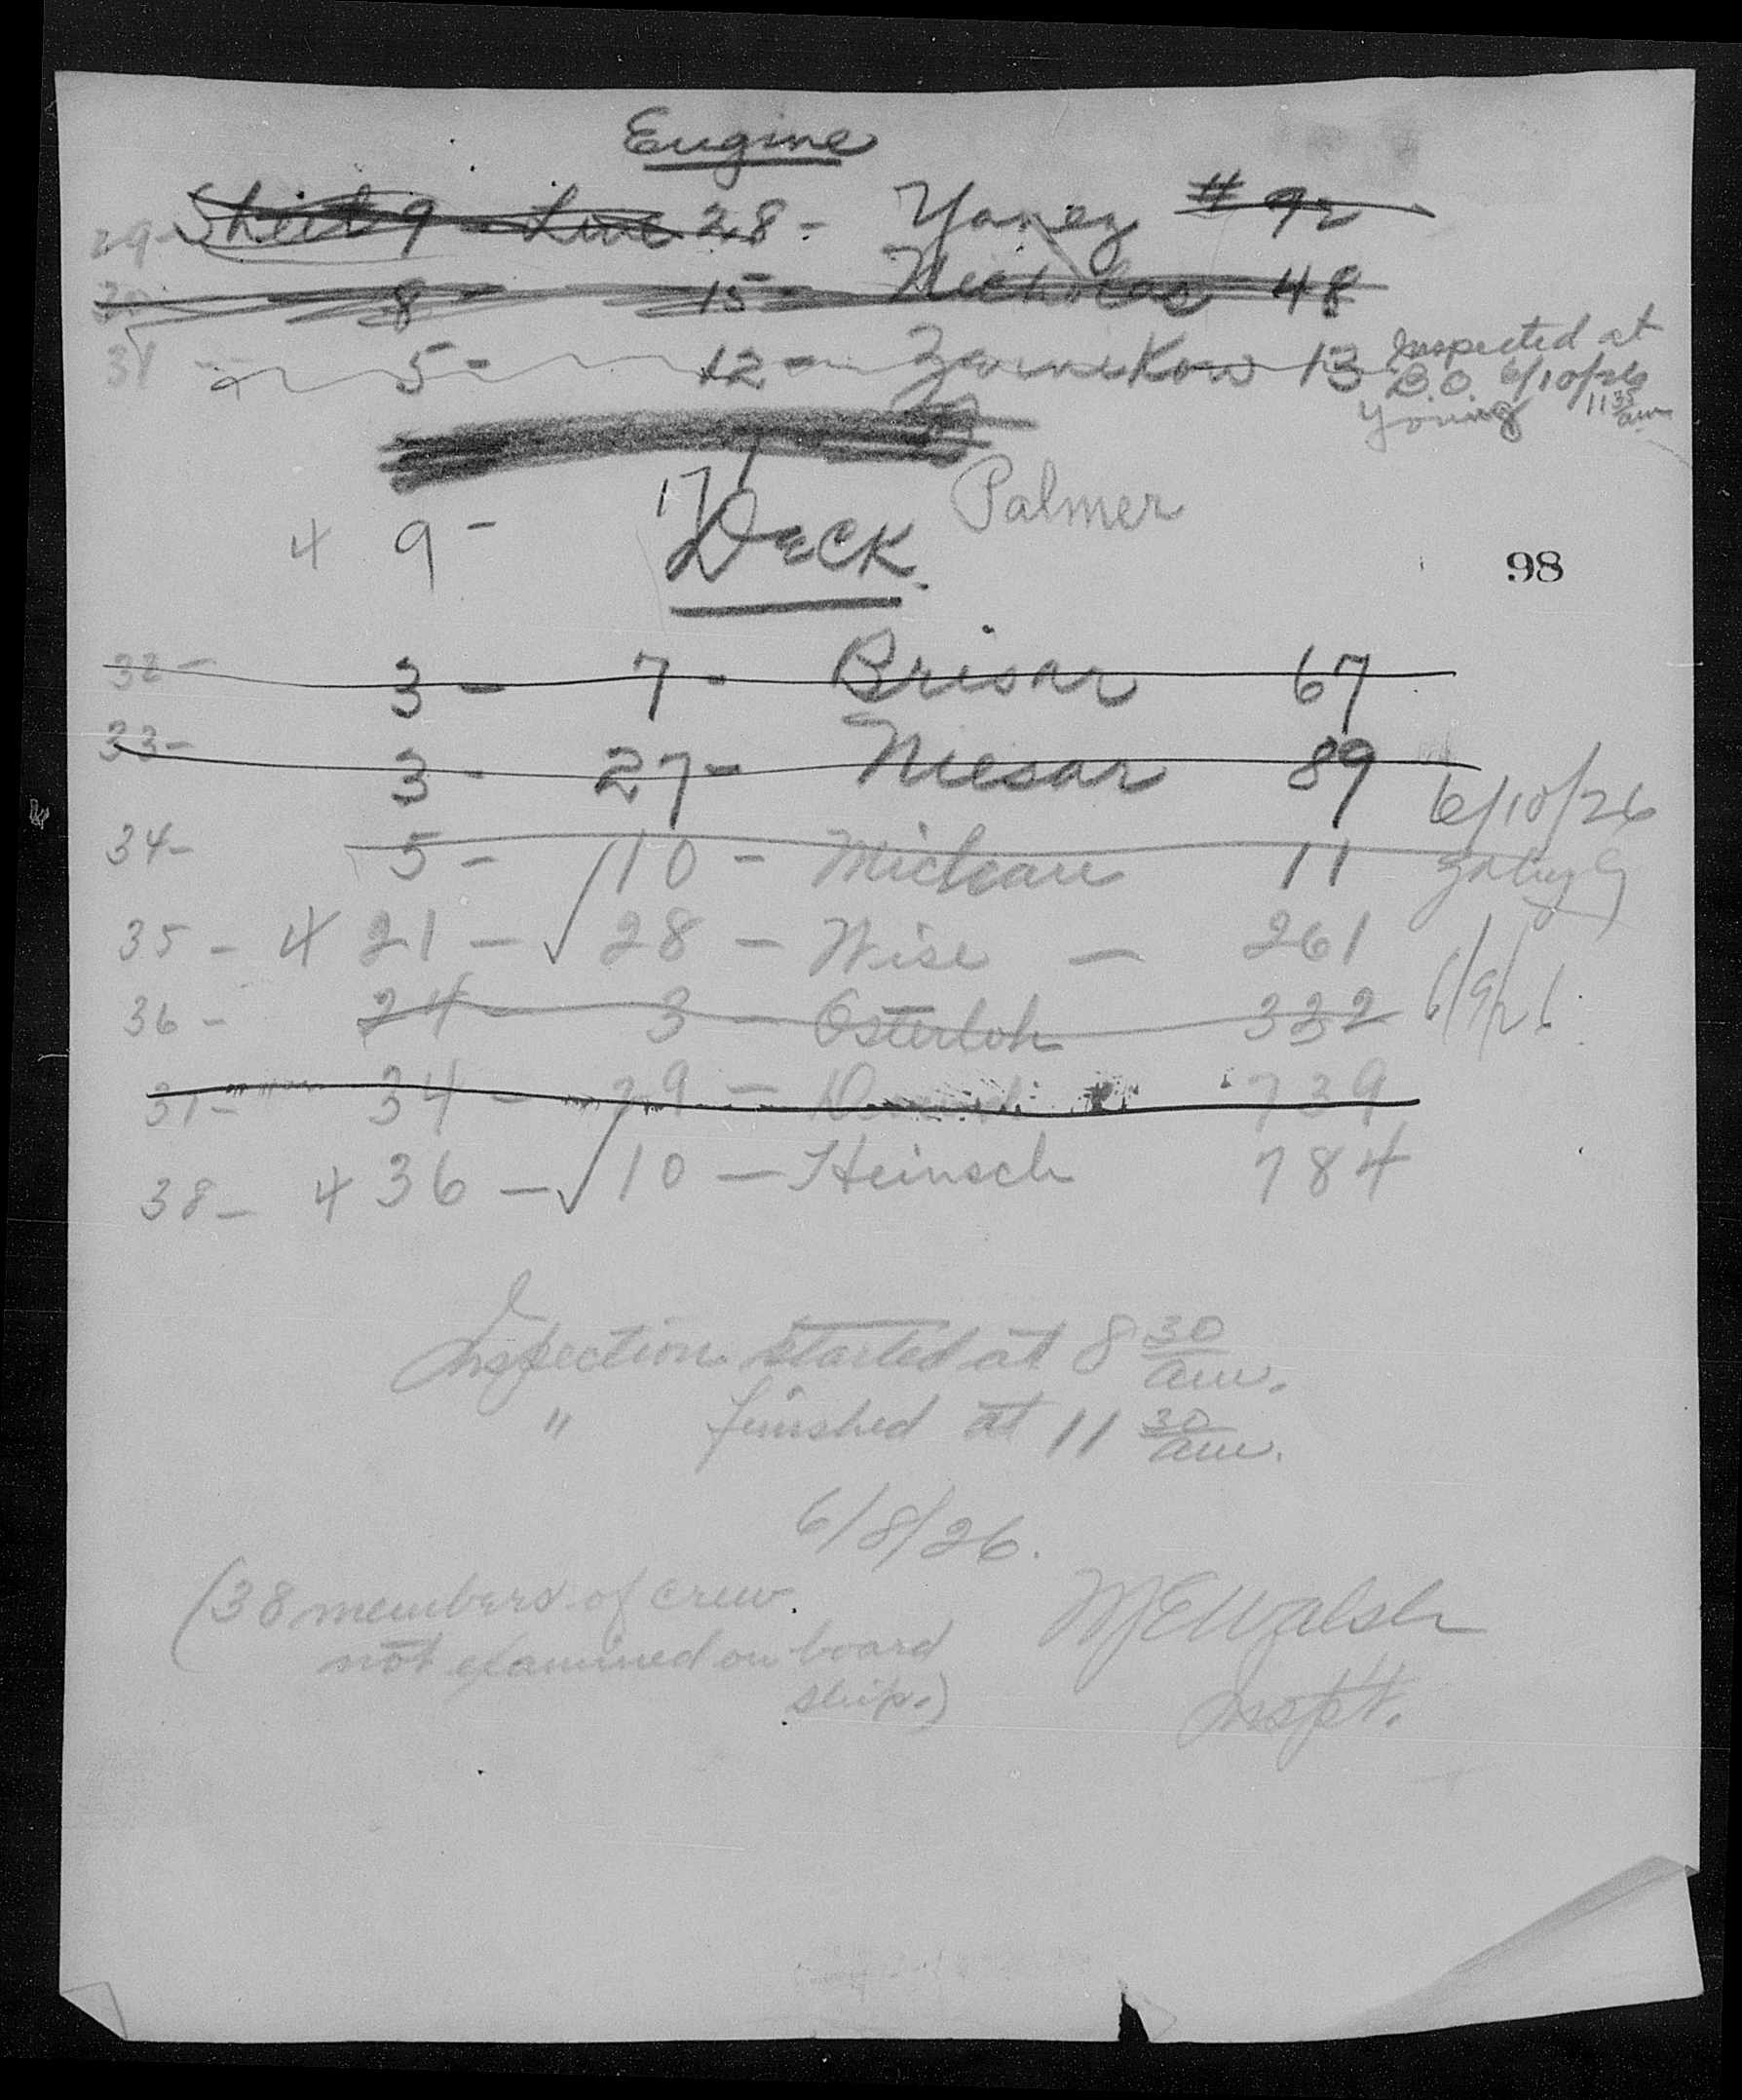 Engine
29- Sheet 9 - Line 28 - Yanez # 92
30 8 - 15 - Nicholas 48
31 - 5 - 12 - Zarnikow 13 Inspected at
B.O. 6/10/26
Young 11 35 am
17
Palmer
4 9 -
Deck.
98
32- 3 - 7 - Brisar 67
33- 3 - 27 - Niesar 89
6/10/26
34- 5 - 10 - 11
35 - 4 21 - 28 - Wise - 261
36 - 24 - 3 - Osterloh 332 6/9/26
37- 34 - 29 - 739
38 - 4 36 - 10 - Heinsch 784
Inspection started at 8 30 am.
" finished at 11 30 am.
6/8/26.
(38 members of crew
not examined on board
ship.)
M E Walsh
Inspt.